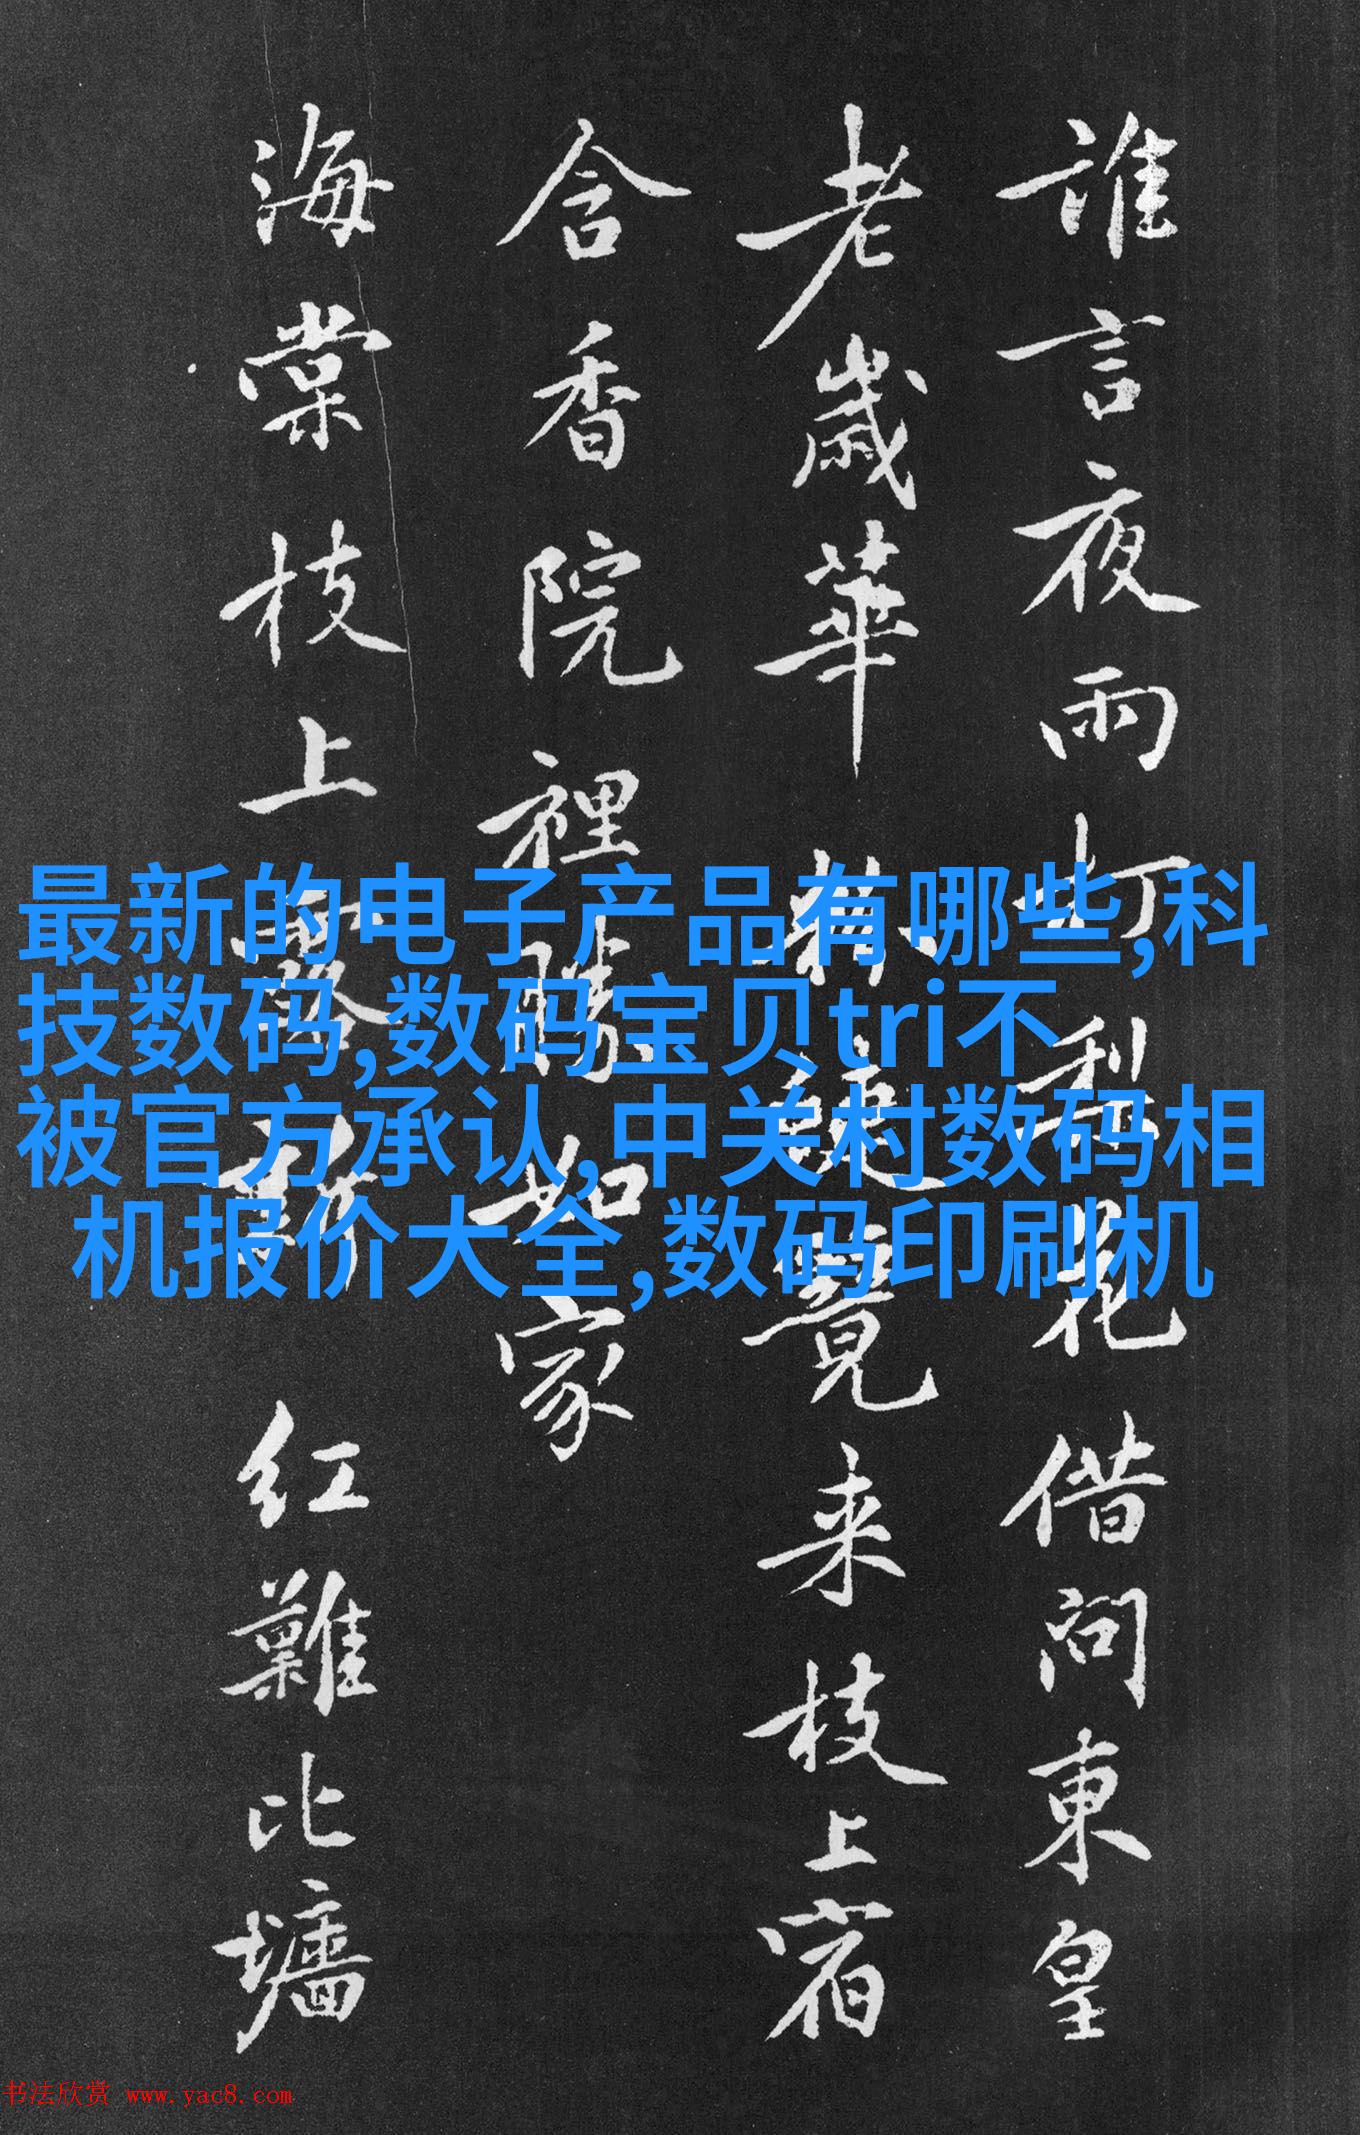 誰言夜雨打梨花借問東皇
老歲華	來枝上宿
含香院裡勝如家
海棠枝上
红難比墻
最新的电子产品有哪些,科
技数码,数码宝贝tri不
被官方承认,中关村数码相
机报价大全,数码印刷机
书法欣赏 www.yac8.com